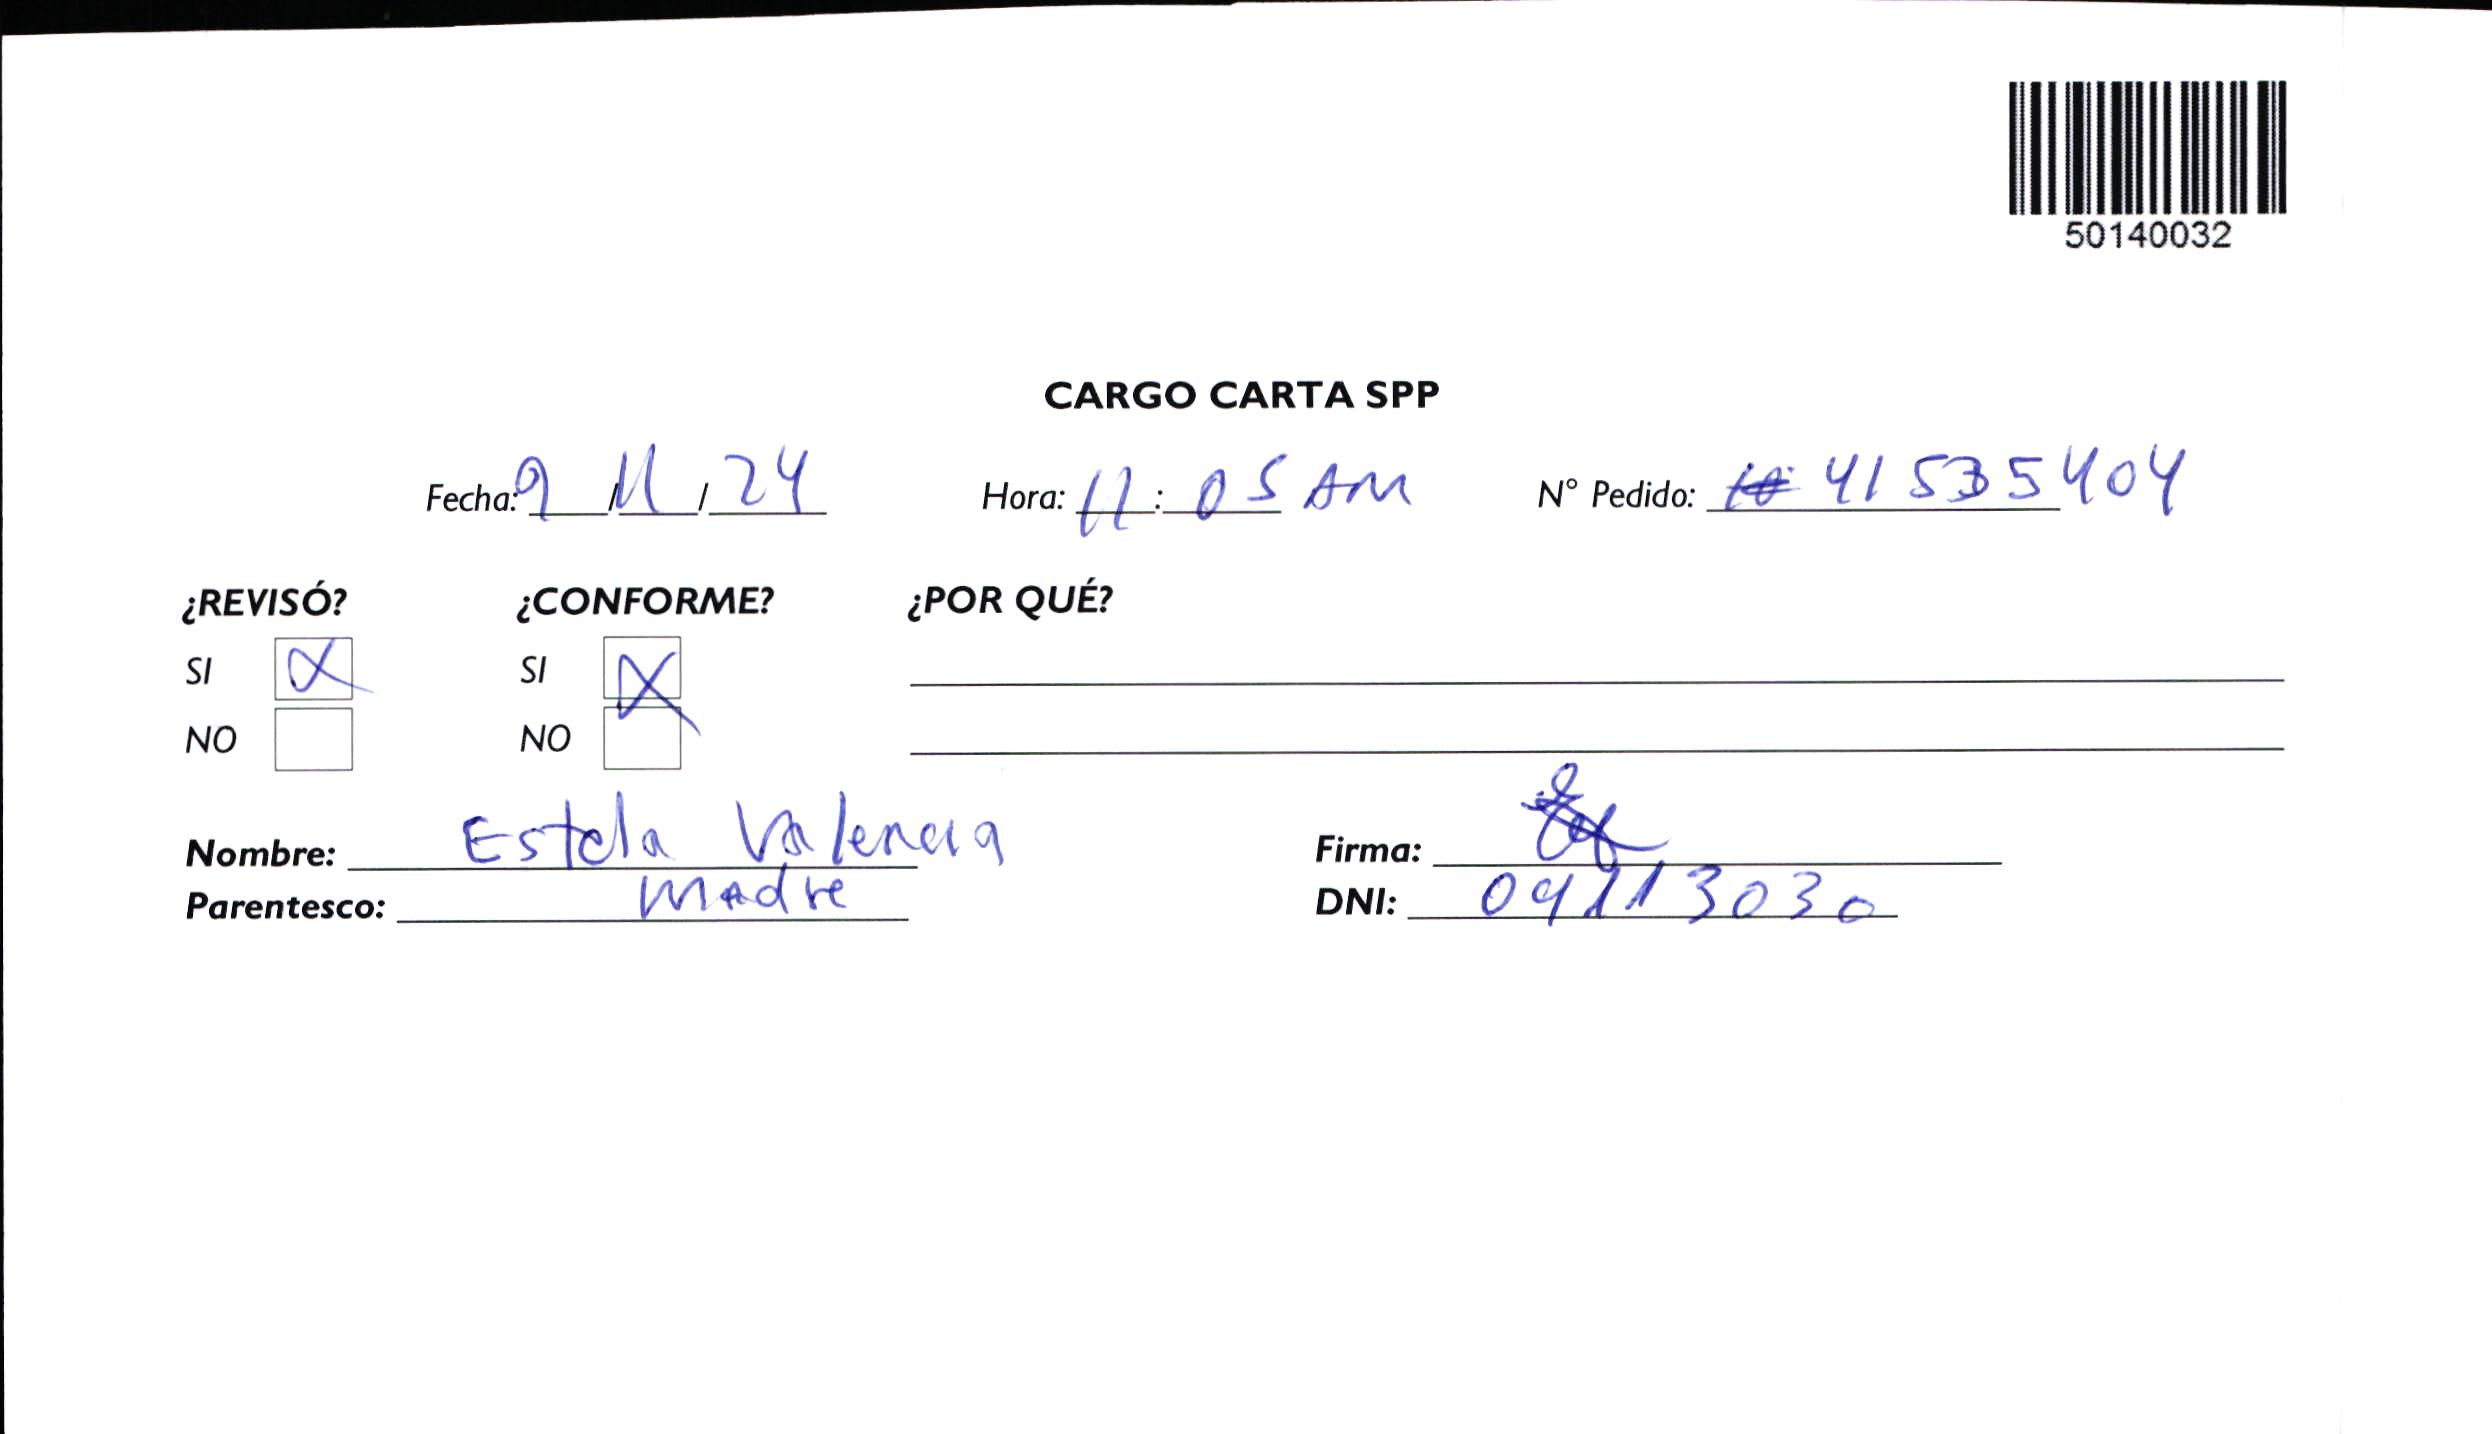 50140032
CARGO CARTA SPP
Fecha: 9 / 11 / 24 Hora: 11 : 05 AM N° Pedido: 41535404
¿REVISÓ? ¿CONFORME? ¿POR QUÉ?
SI SI
NO NO
Nombre: Estela Valencia Firma:
Parentesco: Madre DNI: 09113030